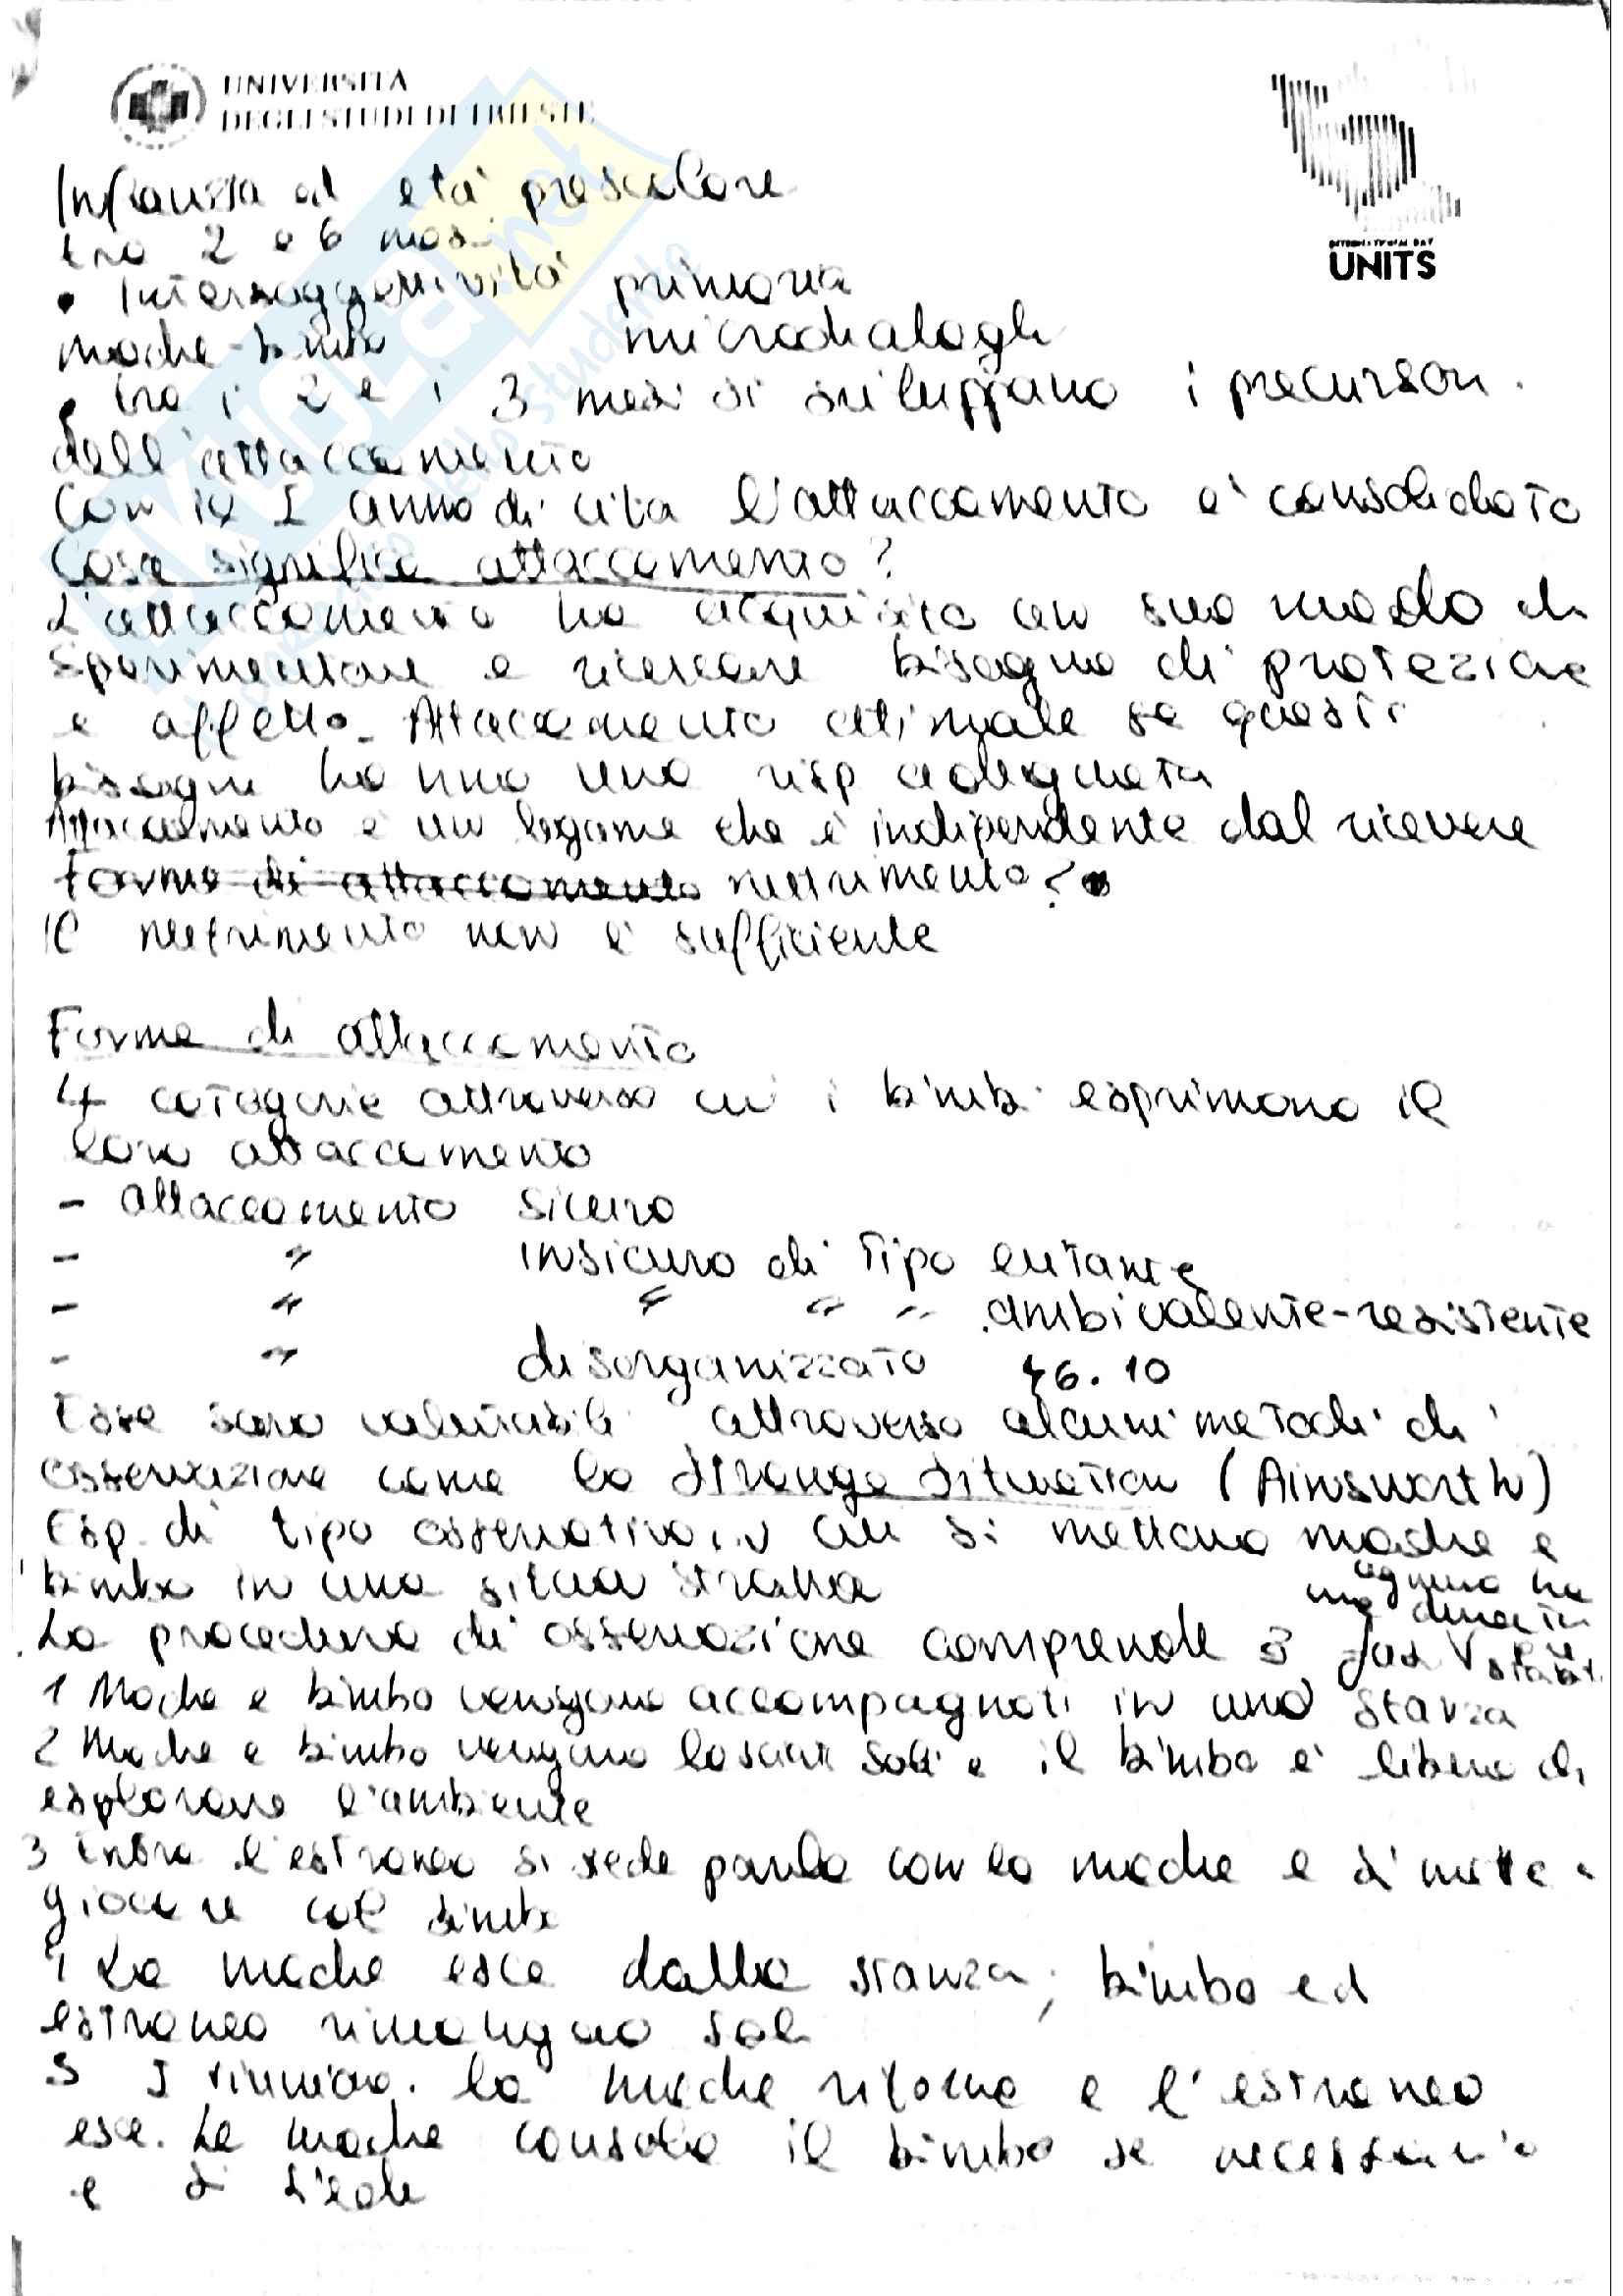 UNIVERSITÀ
DEGLI STUDI DI TRIESTE
UNITS
Infanzia ed età prescolare
tra 2 e 6 mesi
• Intersoggettività primaria
madre-bimbo microdialoghi
• tra i 2 e i 3 mesi si sviluppano i precursori
dell'attaccamento
Con il I anno di vita l'attaccamento è consolidato
Cosa significa attaccamento?
L'attaccamento ha acquisito un suo modo di
sperimentare e ricercare bisogno di protezione
e affetto. Attaccamento ottimale se questi
bisogni hanno una risp adeguata
Attaccamento è un legame che è indipendente dal ricevere
Forme di attaccamento nutrimento?
Il nutrimento non è sufficiente
Forme di attaccamento
4 categorie attraverso cui i bimbi esprimono il
loro attaccamento
- attaccamento sicuro
- " insicuro di tipo evitante
- " " " " ambivalente-resistente
- " disorganizzato 46.10
Esse sono valutabili attraverso alcuni metodi di
osservazione come la Strange Situation (Ainsworth)
Esp. di tipo osservativo in cui si mettono madre e
bimbo in una situa strana
ognuno ha
una durata
La procedura di osservazione comprende fasi
1 Madre e bimbo vengono accompagnati in una stanza
2 Madre e bimbo vengono lasciati soli e il bimbo è libero di
esplorare l'ambiente
3 Entra l'estraneo si siede parla con la madre e si mette a
giocare col bimbo
4 La madre esce dalla stanza; bimbo ed
estraneo rimangono soli
5 I riunione. la madre ritorna e l'estraneo
esce. La madre consola il bimbo se necessario
e si siede